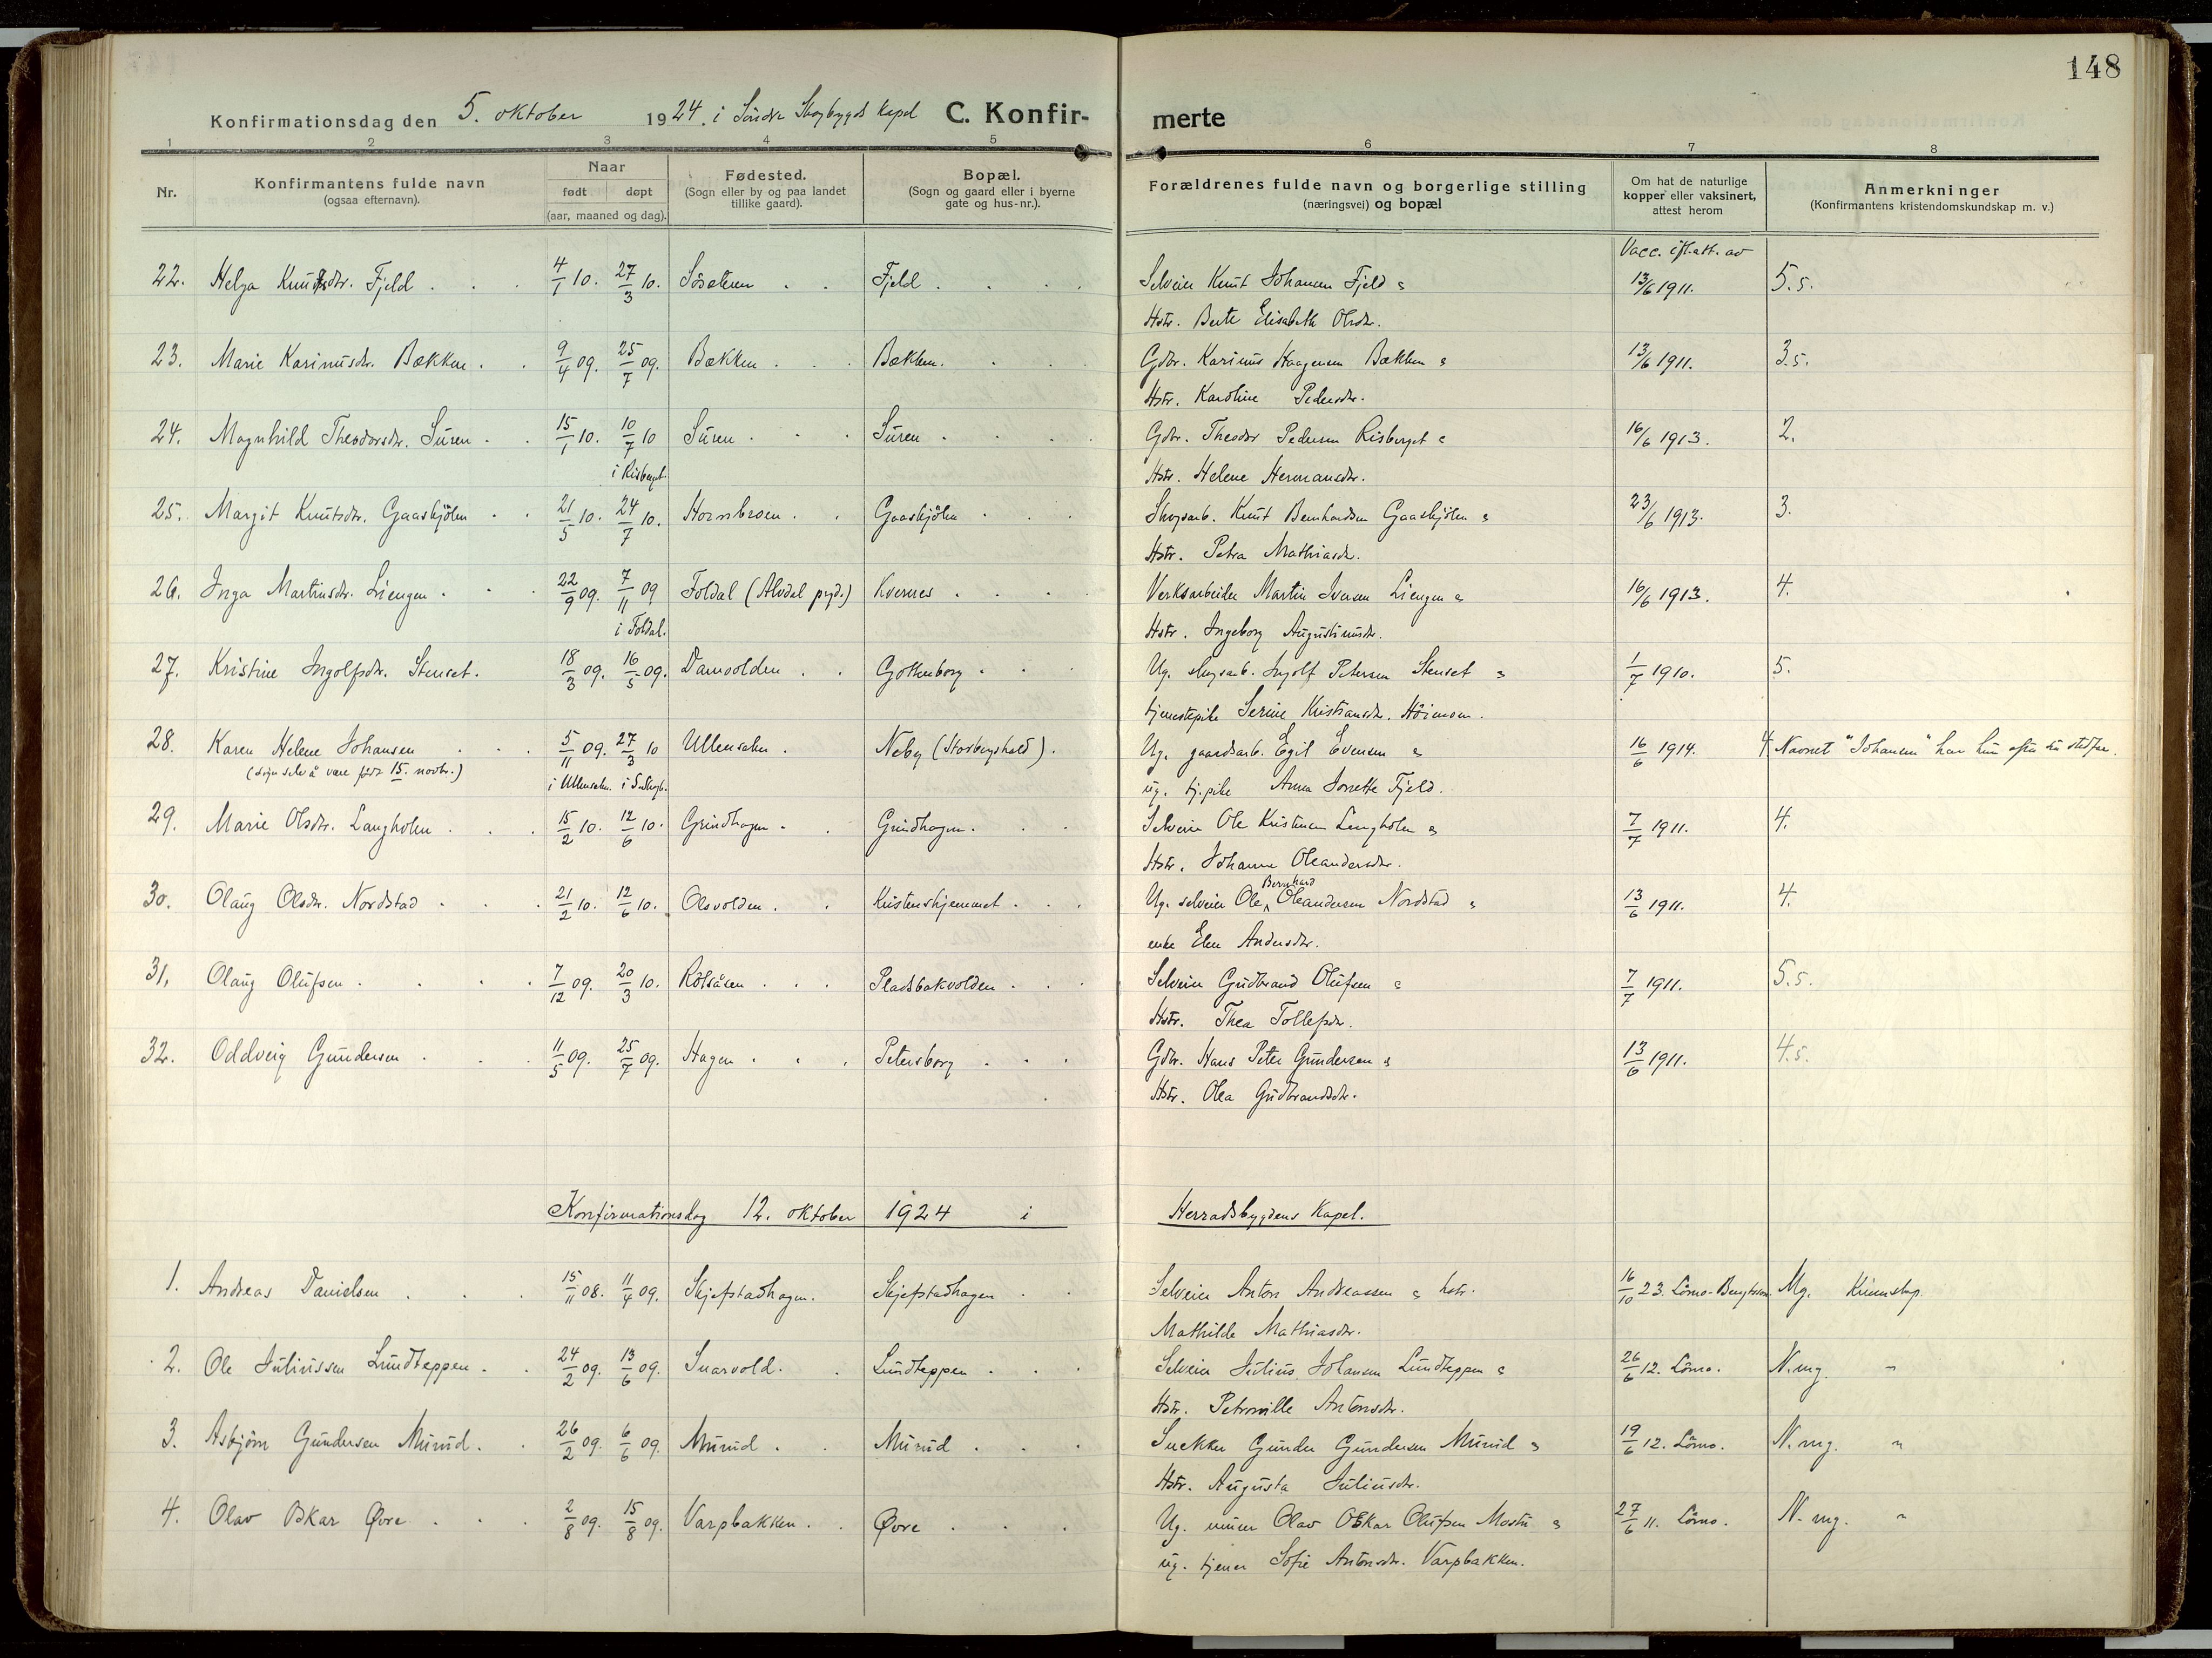 148
Konfirmationsdag den 5. oktober 1924. i Søndre Skogbygds kapel C. Konfir-merte
1 2 3 4 5 6 7 8
Nr.
Konfirmantens fulde navn
(ogsaa efternavn).
Naar
født døpt
(aar, maaned og dag).
Fødested.
(Sogn eller by og paa landet
tillike gaard).
Bopæl.
(Sogn og gaard eller i byerne
gate og hus-nr.).
Forældrenes fulde navn og borgerlige stilling
(næringsvei) og bopæl
Om hat de naturlige
kopper eller vaksinert,
attest herom
Anmerkninger
(Konfirmantens kristendomskundskap m. v.)
Vacc. ifl. att. av
22. Helga Knutsdtr. Fjeld . . 4/1 10. 27/3 10. . . Fjeld . . . Selveier Knut Johansen Fjeld & 13/6 1911. 5.5.
Hstr. Berte Elisabeth Olsdtr.
23. Marie Karinusdtr. Bækken . . 9/4 09. 25/7 09. Bækken . . . Bækken. . . Gdbr. Karinus Haagensen Bækken & 13/6 1911. 3.5.
Hstr. Karoline Pedersdtr.
24. Magnhild Theodorsdtr. Süren . . 15/1 10. 10/7 10 Süren . . . Süren . . . Gdbr. Theodor Pedersen Risberget & 16/6 1913. 2.
i Risberget. Hstr. Helene Hermansdtr.
25. Margit Knutsdtr. Gaaskjølen . . 21/5 10. 24/7 10. Hornbroen . . Gaaskjølen . . . Skogsarb. Knut Bernhardsen Gaaskjølen & 23/6 1913. 3.
Hstr. Petra Mathiasdtr.
26. Inga Martinsdtr. Liengen . . 22/9 09. 7/11 09 Foldal (Alvdal prgd.) Kvernes . . . Verksarbeider Martin Iversen Liengen & 16/6 1913. 4.
i Foldal. Hstr. Ingeborg Augustinusdtr.
27. Kristine Ingolfsdtr. Stenset. 18/3 09. 16/5 09. Damvolden . . Gothenborg . . . Ug. skogsarb. Ingolf Petersen Stenset & 1/7 1910. 5.
tjenestepike Serine Kristiansdtr. Høimoen.
28. Karen Helene Johansen . . . 5/11 09. 27/3 10 Ullensaker . Neby (Storbergshold). Ug. gaardsarb. Egil Evensen & 16/6 1914. 4. Navnet "Johansen" har hun efter sin stedfar.
(sign selv å være født 15. novbr.) i Ullensaker. i S. Skogb. ug. tj.pike Anna Jonette Fjeld.
29. Marie Olsdtr. Langholen . . . 15/2 10. 12/6 10. Grindhagen . . Grindhagen. . . Selveier Ole Kristensen Langholen & 7/7 1911. 4.
Hstr. Johanne Oleandersdtr.
30. Olaug Olsdtr. Nordstad . . . 21/2 10. 12/6 10. Olsvolden . . Kristenshjemmet . . . Ug. selveier Ole Bernhard Oleandersen Nordstad & 13/6 1911. 4.
enke Elen Andersdtr.
31. Olaug Olufsen . . . . 7/12 09. 20/3 10. Rotsåsen . . . Pladsbakvolden . . . Selveier Gudbrand Olufsen & 7/7 1911. 5.5.
Hstr. Thea Tollefsdtr.
32. Oddveig Gundersen . . . 11/5 09. 25/7 09. Hagen . . . Petersborg . . . Gdbr. Hans Peter Gundersen & 13/6 1911. 4.5.
Hstr. Olea Gudbrandsdtr.
Konfirmationsdag 12. oktober 1924 i Herradsbygdens Kapel.
1. Andreas Danielsen . . . 15/11 08. 11/4 09. Skjefstadhagen. Skjefstadhagen . . Selveier Anton Andreassen & hstr. 16/10 23. Lömo-Bengtsson. Mg. Kunnskap.
Mathilde Mathiasdtr.
2. Ole Juliussen Lundteppen . . 24/2 09. 13/6 09. Snarvold. . Lundteppen . . . Selveier Julius Johansen Lundteppen & 26/6 12. Lömo. N. mg. "
Hstr. Petronille Antonsdtr.
3. Asbjörn Gundersen Mürud . . 26/2 09. 6/6 09. Mürud . . Mürud . . . Snekker Gunder Gundersen Mürud & 19/6 12. Lömo. N. mg. "
Hstr. Augusta Juliusdtr.
4. Olav Oskar Øvre . . . 2/8 09. 15/8 09. Varpbakken . . Øvre . . . Ug. Olav Oskar Olufsen & 27/6 11. Lömo. N. mg. "
ug. tjener Sofie Antonsdtr. Varpbakken.